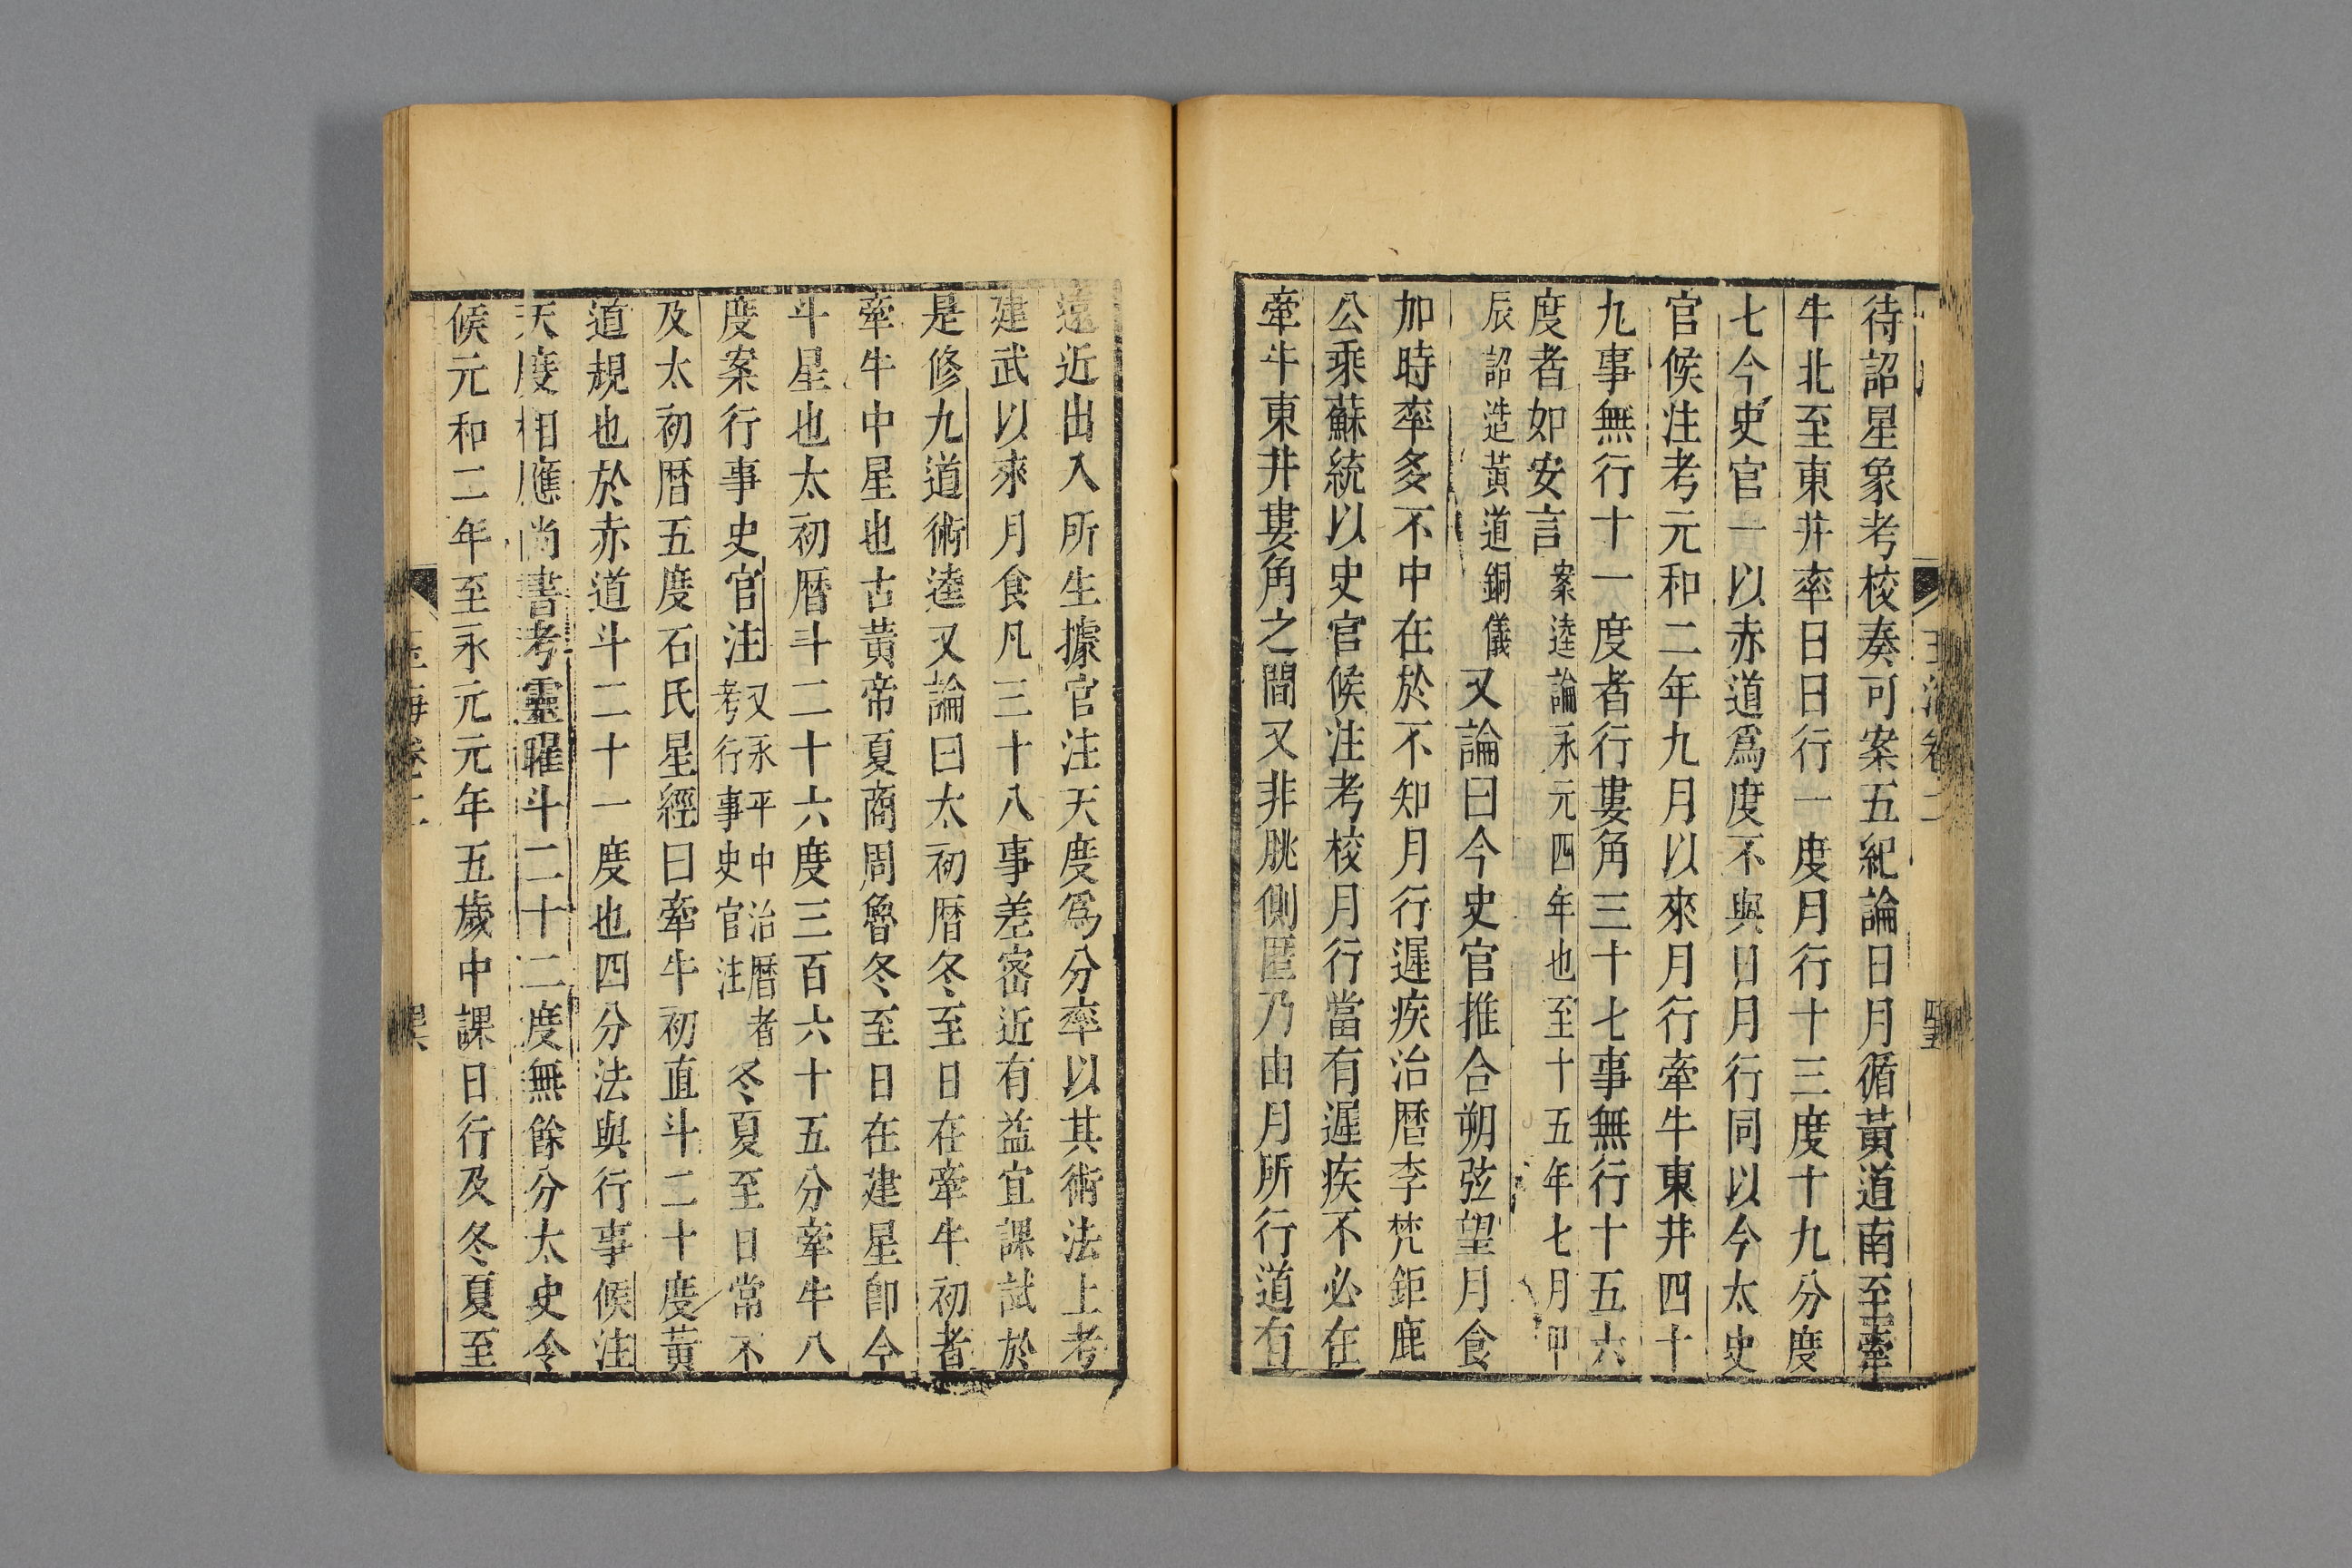 待詔星象考校奏可案五紀論日月循黃道南至牽
牛北至東井率日日行一度月行十三度十九分度
七今史官一以赤道爲度不與日月行同以今太史
官候注考元和二年九月以來月行牽牛東井四十
九事無行十一度者行婁角三十七事無行十五六
度者如安言案逵論永元四年也至十五年七月甲
辰詔造黃道銅儀又論曰今史官推合朔弦望月食
加時率多不中在於不知月行遲疾治曆李梵鉅鹿
公乘蘇統以史官候注考校月行當有遲疾不必在
牽牛東井婁角之間又非朓側匿乃由月所行道有
遠近出入所生據官注天度爲分率以其術法上考
建武以來月食凡三十八事差密近有益宜課試於
是修九道術逵又論曰太初曆冬至日在牽牛初者
牽牛中星也古黃帝夏商周魯冬至日在建星卽今
斗星也太初曆斗二十六度三百六十五分牽牛八
度案行事史官注又永平中治曆者考行事史官注冬夏至日常不
及太初曆五度石氏星經曰牽牛初直斗二十度黃
道規也於赤道斗二十一度也四分法與行事候注
天度相應尚書考靈曜斗二十二度無餘分太史令
候元和二年至永元元年五歲中課日行及冬夏至
玉海卷二